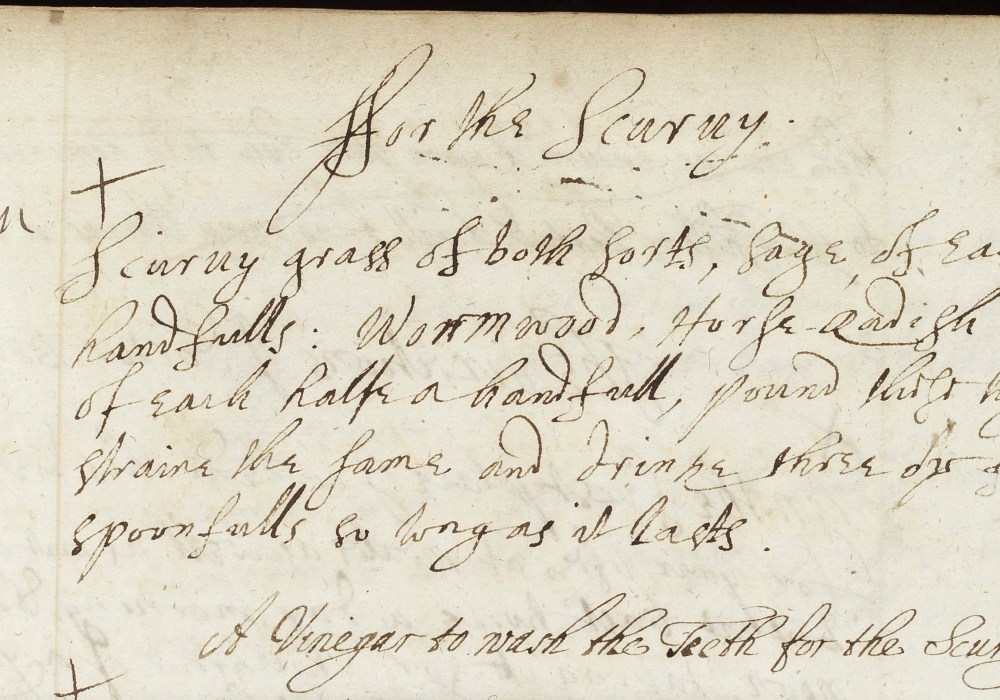 ffor the Scuruy.
Scuruy grass of both sorts, Sage, of ea
handfulls: Wormwood, Horse-Radish
of each halfe a handfull, pound these
straine the same and drinke three or
spoonfulls so long as it lasts.
A Vinegar to wash the Teeth for the Scur